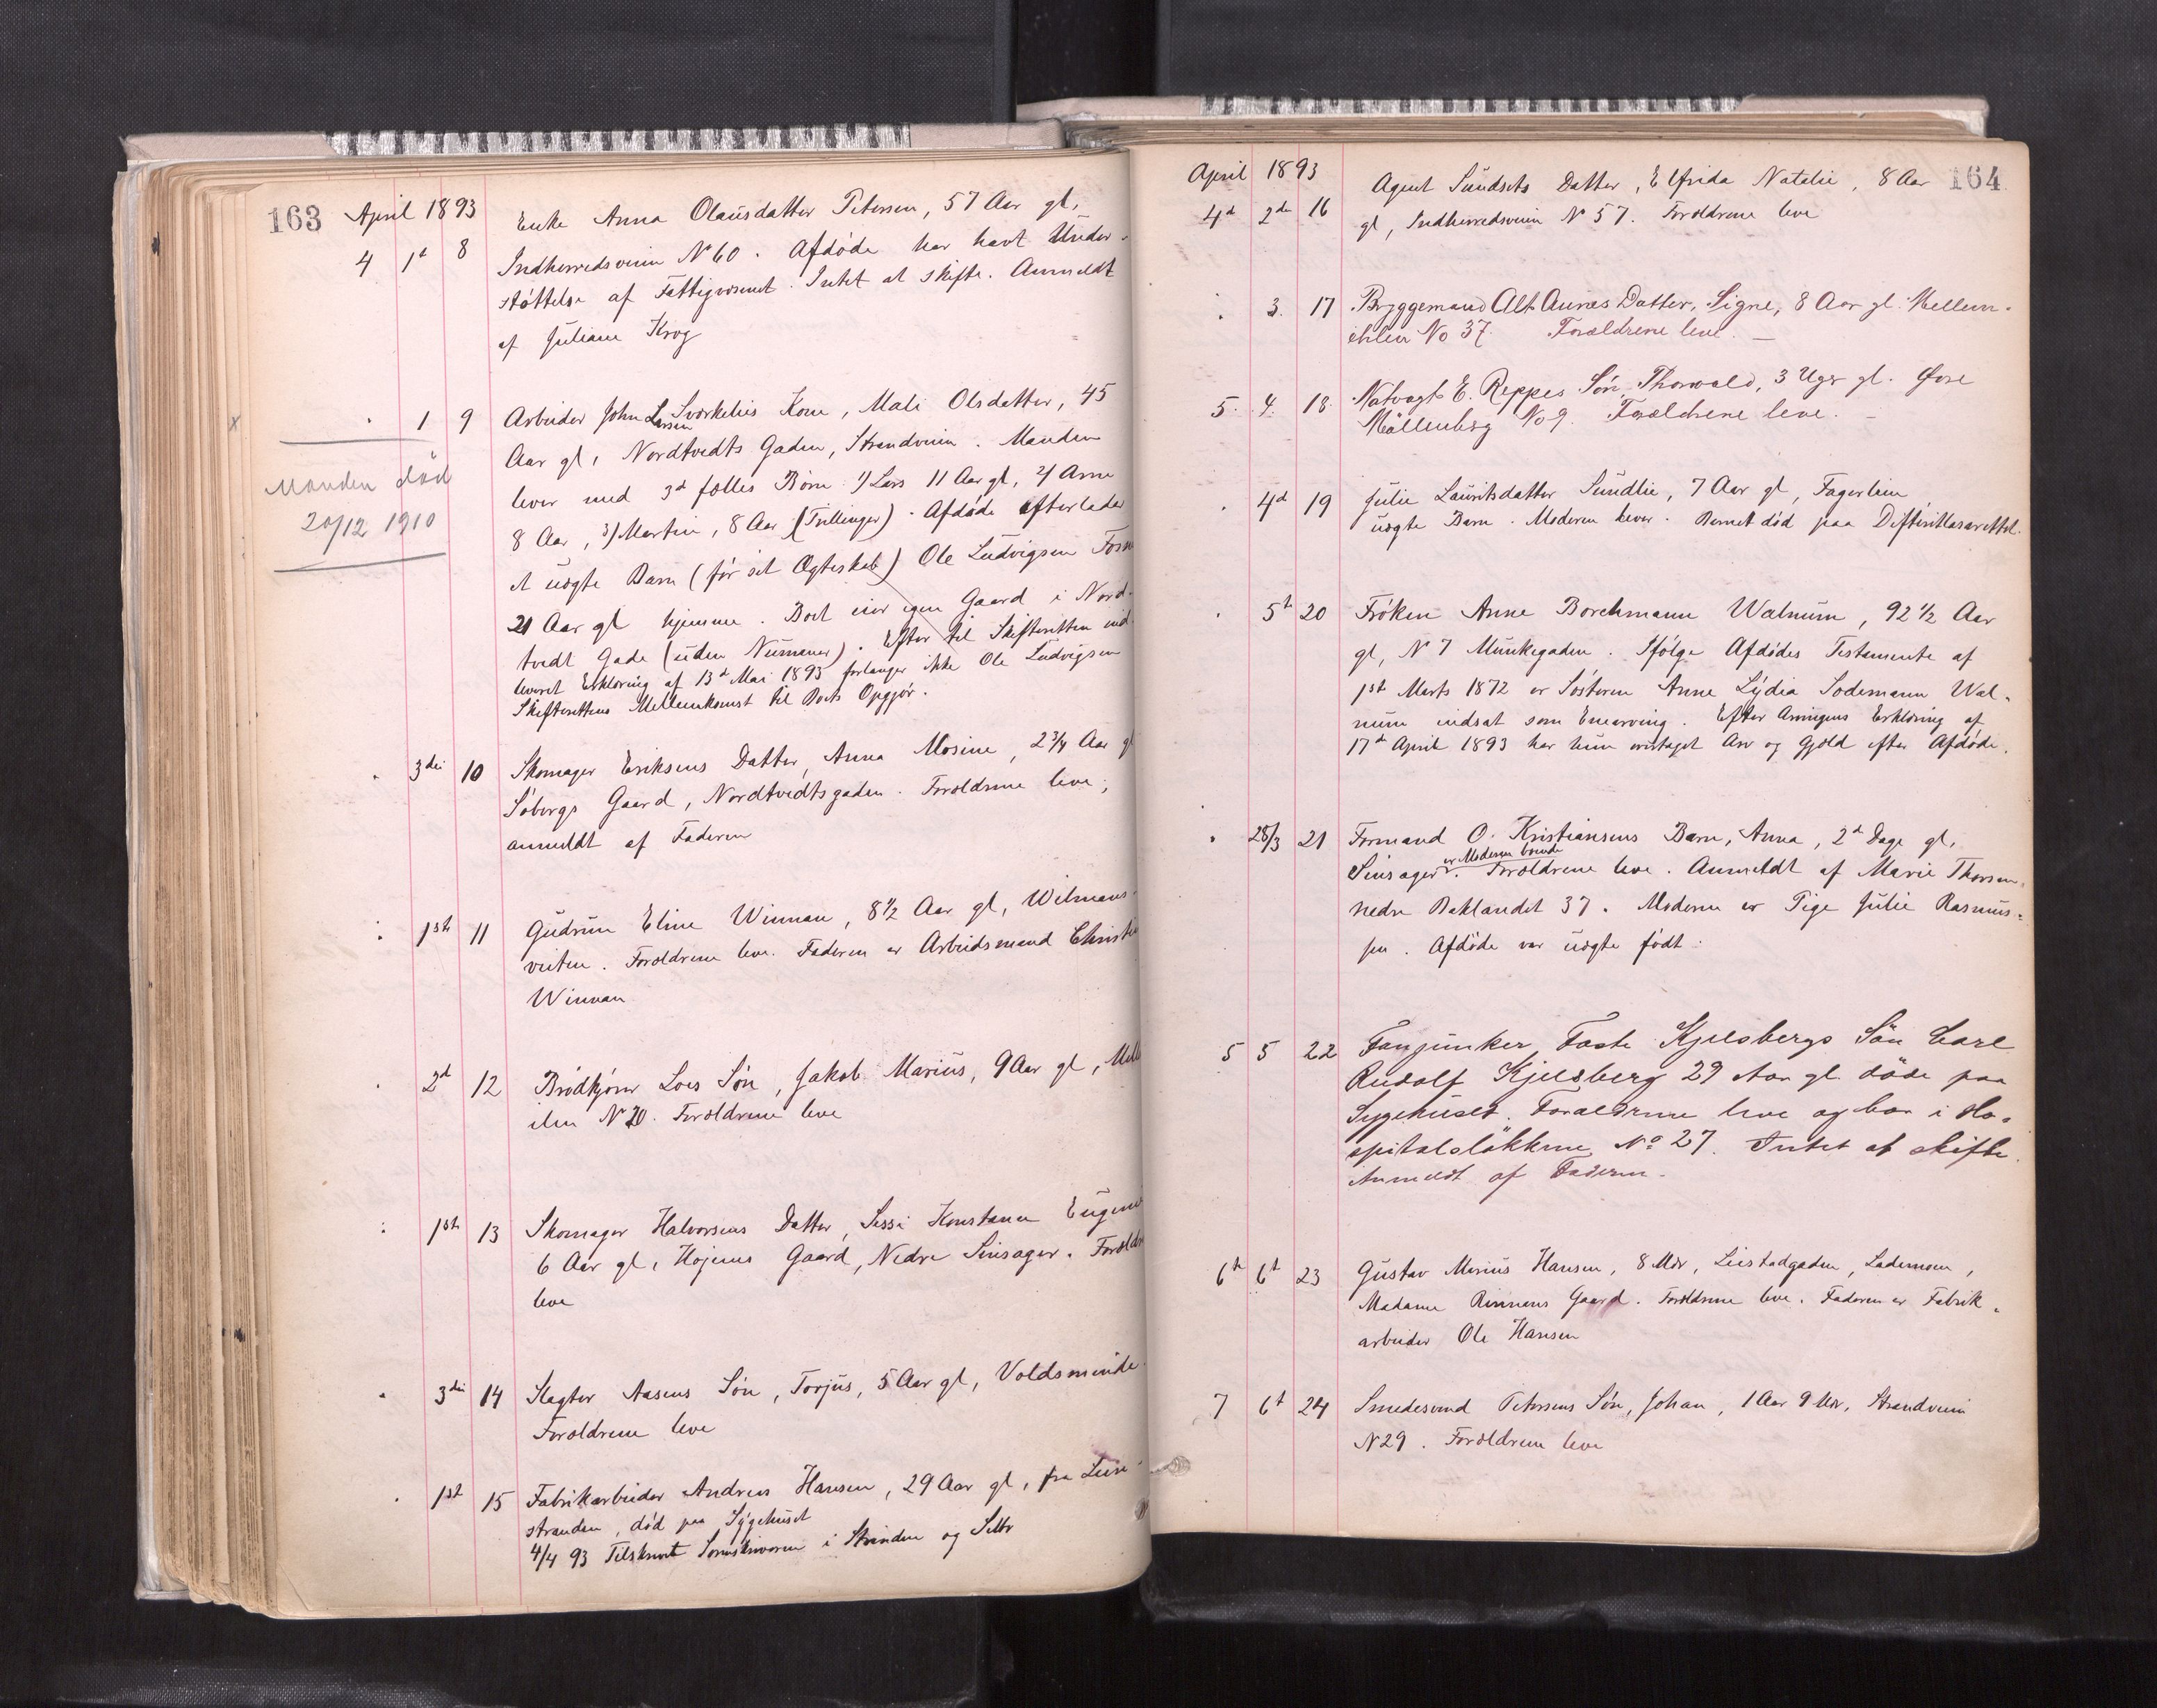 163 April 1893
4 1st 8 Enke Anna Olausdatter Petersen, 57 Aar gl,
Indherredsveien No 60. Afdøde har havt Under-
støttelse af Fattigvæsenet. Intet at skifte. Anmeldt
af Juliane Krog
x " 1 9 Arbeider John Larsen Sværkelies Kone, Mali Olsdatter, 45
Aar gl, Nordtvedts Gaden, Strandveien. Manden
lever med 3d fælles Børn 1) Lars 11 Aar gl, 2) Arne
8 Aar, 3) Martin, 8 Aar (Tvillinger). Afdøde efterlader
et uægte Barn (før sit Ægteskab) Ole Ludvigsen
21 Aar gl hjemme. Boet eier egen Gaard i Nord-
tvedt Gade (uden Numer). Efter til Skifteretten ind-
leveret Erklæring af 13d Mai 1893 forlanger ikke Ole Ludvigsen
Skifterettens Mellemkomst til Boets Opgjør.
Manden død
20/12 1910
" 3die 10 Skomager Eriksens Datter, Anna Mosine, 2 3/4 Aar gl
Søbergs Gaard, Nordtvedtsgaden. Forældrene leve;
anmeldt af Faderen
" 1ste 11 Gudrun Eline Winnan, 8 1/2 Aar gl, Wilmans-
veiten. Forældrene leve. Faderen er Arbeidsmand
Winnan
" 2d 12 Brødkjører Loes Søn, Jakob Marius, 9 Aar gl,
ilen No 20. Forældrene leve
" 1ste 13 Skomager Halvorsens Datter, Sessi Konstanse
6 Aar gl, Højems Gaard, Nedre Singsager.
leve
" 3die 14 Slagter Aasens Søn, Torjus, 5 Aar gl, Voldsminde.
Forældrene leve
" 1ste 15 Fabrikarbeider Andreas Hansen, 29 Aar gl, fra
stranden, død paa Sygehuset
4/4 93 Tilskrevet Sorenskriveren i Strinden og Selbo
April 1893 164
4d 2den 16 Agent Sundsets Datter, Elfrida Natalie, 8 Aar
gl, Indherredsveien No 57. Forældrene leve
" 3. 17 Bryggemand Alb Aunes Datter, Signe, 8 Aar gl. Mellem-
ihlen No 37. Forældrene leve. —
5. 4. 18 Natvagt E. Reppes Søn, Thorvald, 3 Uger gl. Øvre
Møllenberg No 9. Forældrene leve. —
" 4d 19 Julie Lauritsdatter Sundlie, 7 Aar gl, Fagerlien
uægte Barn. Moderen lever. Barnet død paa Difteritlasarettet.
" 5t 20 Frøken Anne Borchmann Walnum, 92 1/2 Aar
gl, No 7 Munkegaden. Ifølge Afdødes Testamente af
1ste Marts 1872 er Søsteren Anne Lydia Sodemann Wal-
num indsat som Enearving. Efter Arvingens Erklæring af
17d April 1893 har hun overtaget Arv og Gjæld efter Afdøde.
" 28/3 21 Formand O. Kristiansens Barn, Anna, 2d Dage gl,
er Moderen boende
Singsager. Forældrene leve. Anmeldt af Marie Thorsen,
nedre Baklandet 37. Moderen er Pige Julie Rasmus-
sen. Afdøde var uægte født.
5 5 22 Fanjunker Faste Kjelsbergs Søn Carl
Rudolf Kjelsberg 29 Aar gl. døde paa
Sygehuset. Forældrene leve og bor i Ho-
spitalsløkkerne No 27. Intet at skifte.
Anmeldt af Faderen.
6t 6t 23 Gustav Marius Hansen, 8 Mdr, Liestadgaden, Lademoen,
Madame Rinnans Gaard. Forældrene leve. Faderen er Fabrik-
arbeider Ole Hansen
7 6t 24 Smedesvend Petersens Søn, Johan, 1 Aar 9 Mdr, Strandveien
No 29. Forældrene leve